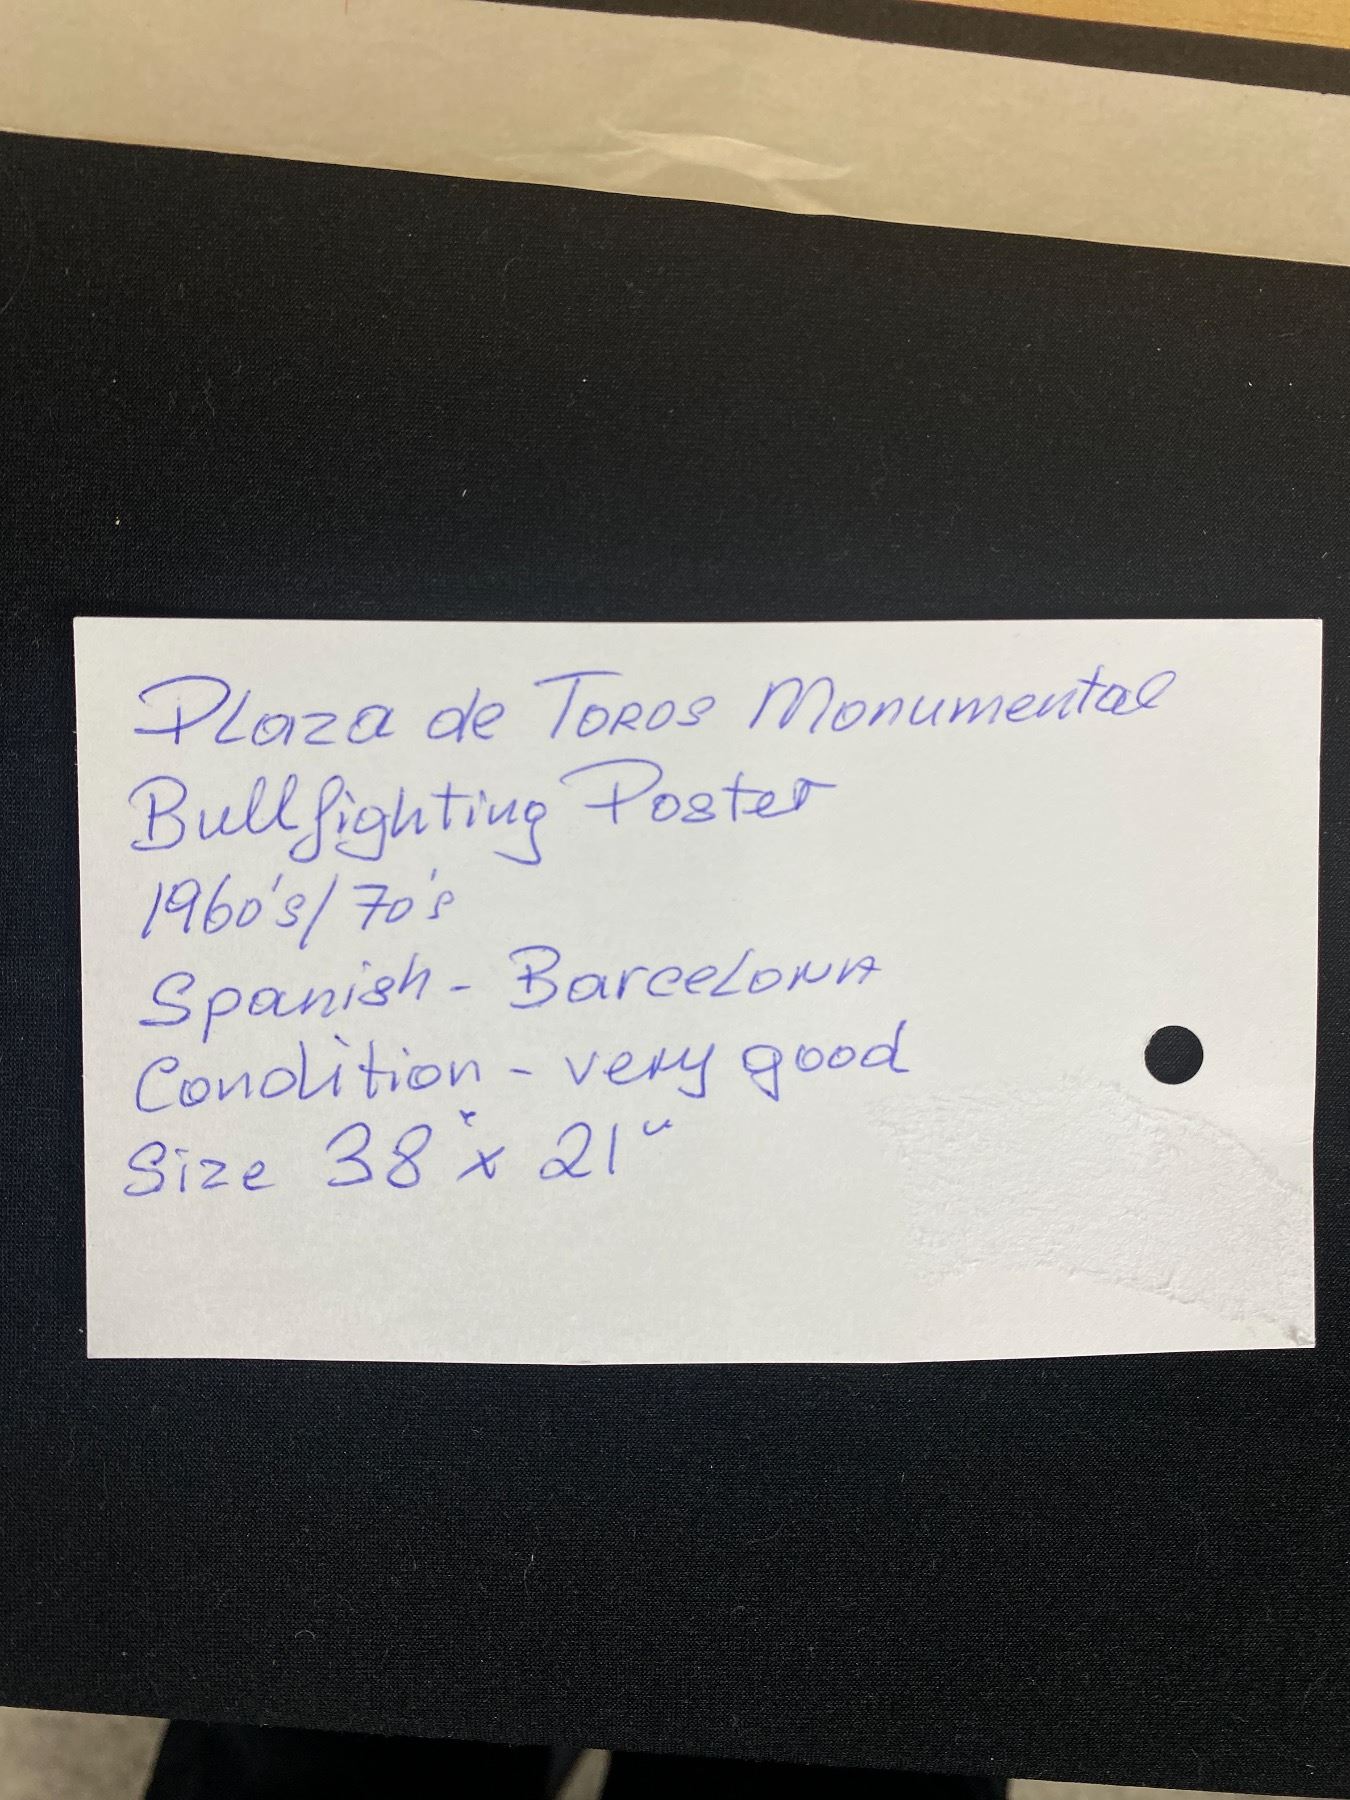 Plaza de Toros Monumental
Bullfighting Poster
1960's/70's
Spanish - Barcelona
Condition - very good
Size 38" x 21"